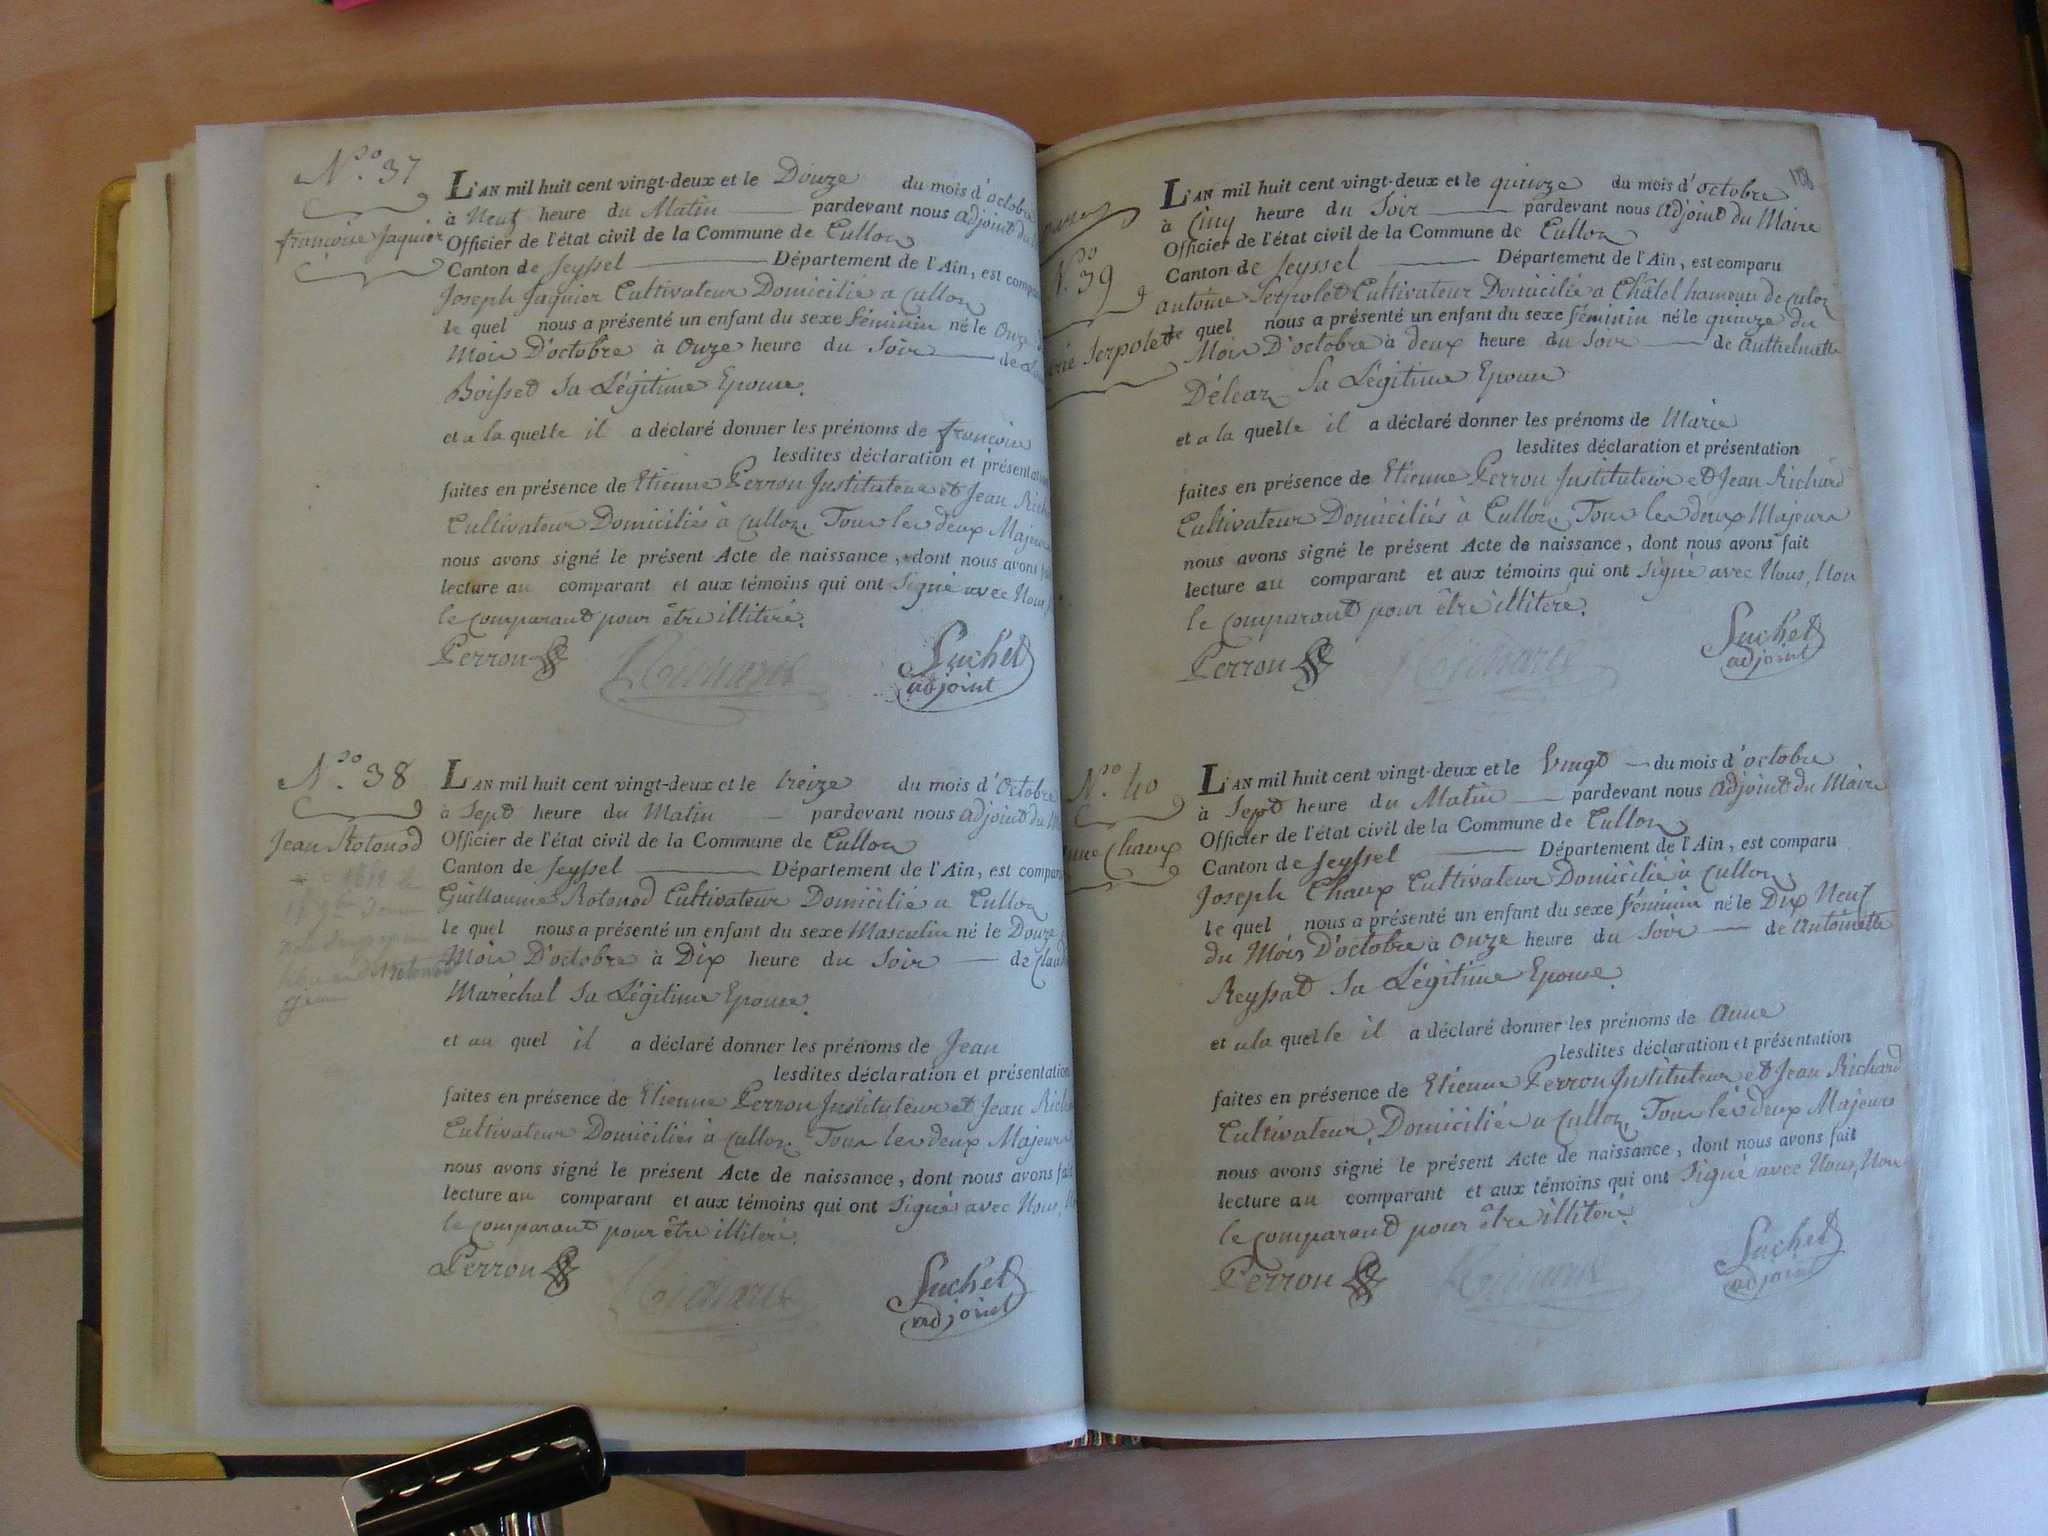 N.º 37
françoise Jaquier
L'AN mil huit cent vingt-deux et le Douze du mois d'octobre
à Neuf heure du Matin pardevant nous adjoint du
Officier de l'état civil de la Commune de Culloz
Canton de Seyssel Département de l'Ain, est
Joseph Jaquier Cultivateur Domicilié a Culloz
le quel nous a présenté un enfant du sexe féminin né le Onze
Mois D'octobre à Onze heure du Soir de
Boisset Sa Légitime Epouse.
et a la quelle il a déclaré donner les prénoms de françoise
lesdites déclaration et présentation
faites en présence de Etienne Perron Instituteur et Jean
Cultivateur Domiciliés à Culloz. Tous les deux Majeurs
nous avons signé le présent Acte de naissance, dont nous avons
lecture au comparant et aux témoins qui ont Signé avec Nous,
le comparant pour être illitéré.
Perron Richard Suchet
adjoint
N.º 38
Jean Rotonod
L'AN mil huit cent vingt-deux et le treize du mois d'Octobre
à Sept heure du Matin pardevant nous adjoint du
Officier de l'état civil de la Commune de Culloz
Canton de Seyssel Département de l'Ain, est
Guillaume Rotonod Cultivateur Domicilié a Culloz
le quel nous a présenté un enfant du sexe Masculin né le Douze
Mois D'octobre à Dix heure du Soir de
Maréchal Sa Légitime Epouse.
et au quel il a déclaré donner les prénoms de Jean
lesdites déclaration et présentation
faites en présence de Etienne Perron Instituteur et Jean
Cultivateur Domiciliés à Culloz. Tous les deux Majeurs
nous avons signé le présent Acte de naissance, dont nous avons
lecture au comparant et aux témoins qui ont Signé avec Nous,
le comparant pour être illitéré.
Perron Richard Suchet
adjoint
N.º 39
Serpolet
L'AN mil huit cent vingt-deux et le quinze du mois d'octobre
à Cinq heure du Soir pardevant nous adjoint du Maire
Officier de l'état civil de la Commune de Culloz
Canton de Seyssel Département de l'Ain, est comparu
antoine Serpolet Cultivateur Domicilié a Châtel hameau de Culoz
le quel nous a présenté un enfant du sexe féminin né le quinze du
Mois D'octobre à deux heure du Soir de Anthelmette
Déléaz Sa Légitime Epouse
et a la quelle il a déclaré donner les prénoms de Marie
lesdites déclaration et présentation
faites en présence de Etienne Perron Instituteur et Jean Richard
Cultivateur Domiciliés à Culloz. Tous les deux Majeurs
nous avons signé le présent Acte de naissance, dont nous avons fait
lecture au comparant et aux témoins qui ont Signé avec Nous, Non
le comparant pour être illitéré.
Perron Richard Suchet
adjoint
N.º 40
Chaux
L'AN mil huit cent vingt-deux et le Vingt du mois d'octobre
à Sept heure du Matin pardevant nous adjoint du Maire
Officier de l'état civil de la Commune de Culloz
Canton de Seyssel Département de l'Ain, est comparu
Joseph Chaux Cultivateur Domicilié à Culloz
le quel nous a présenté un enfant du sexe féminin né le Dix Neuf
du Mois D'octobre à Onze heure du Soir de Antoinette
Reyssat Sa Légitime Epouse.
et a la quelle il a déclaré donner les prénoms de Anne
lesdites déclaration et présentation
faites en présence de Etienne Perron Instituteur et Jean Richard
Cultivateur, Domiciliés a Culloz, Tous les deux Majeurs
nous avons signé le présent Acte de naissance, dont nous avons fait
lecture au comparant et aux témoins qui ont Signé avec Nous, Non
le comparant pour être illitéré.
Perron Richard Suchet
adjoint